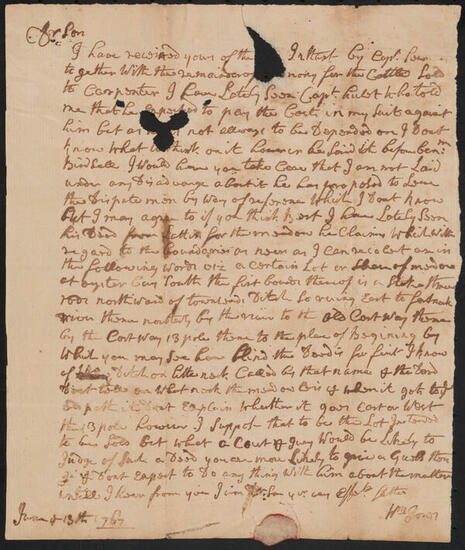 Dr Son
I have received yours of the Instant by Capt
together With the remainder of mony for the Cattle Sold
to Carpenter I have Lately Seen Capt hulet Who told
me that he expected to pay the Cost in my Suit against
him but as not allways to be Depended on I Dont
know What to think on it however he Said it before
Birdsell I Would have you take Care that I am not Laid
under any Disadvantage about it he has proposed to Leave
the Dispute men by Way of Which I Dont know
but I may agree to if you think best I have Lately Seen
his Deed from for the meadow he Claims Which With
regard to the boundaries as near as I can recolect are in
the following Words viz a Certain Lot or Share of meadow
at oyster bay South the first bounds thereof is a Stake three
rods northward of townsends Ditch So runing East to
river thence northerly by the river to the old Cart Way thence
by the Cart Way 13 pole thence to the place of Begining by
Which you may See how blind the Deed is for first I know
of Ditch on neck Called by that name & the Deed
Dont tell on What neck the meadow Lies & When it got to
path it Dont Explain Whether it goes East or West
the 13 pole however I Suppose that to be the Lot Intended
to be Sold but What a Court & Jury Would be Likely to
Judge of Such a Deed you can more Likely to give a Guess then
I & Dont Expect to Do any thing With him about the matter
untill I hear from you I am Dr Son yr very
June ye 13th 1767